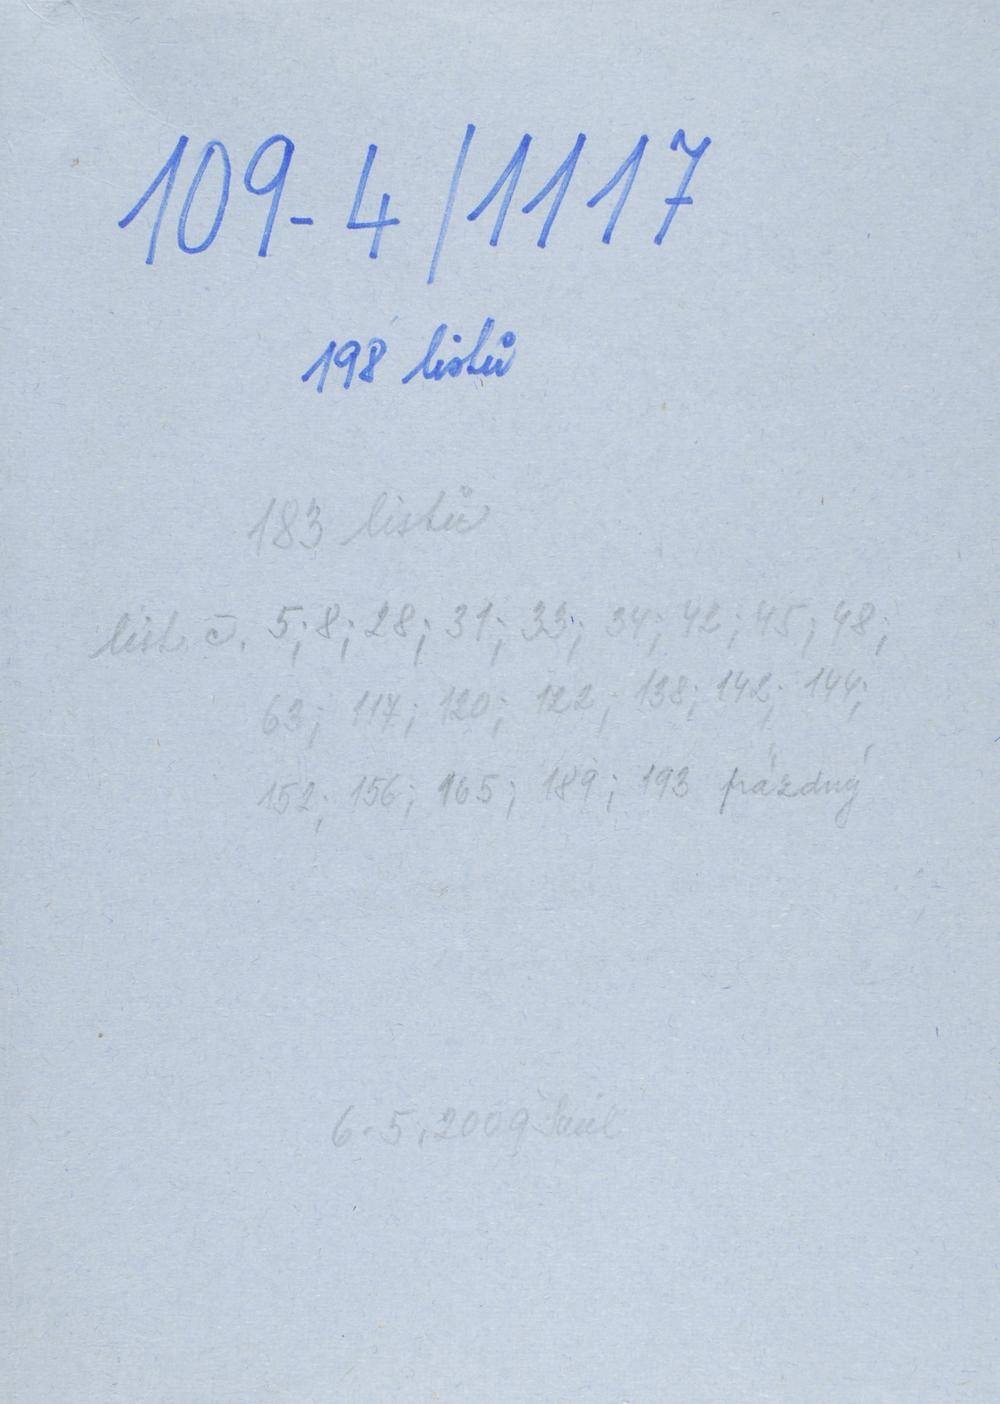 109-4/1117
198 listů
183 listů
list č. 5; 8; 28; 31; 33; 34; 42; 45; 48;
63; 117; 120; 122; 138; 142; 144;
152; 156; 165; 189; 193 prázdný
6.5.2009